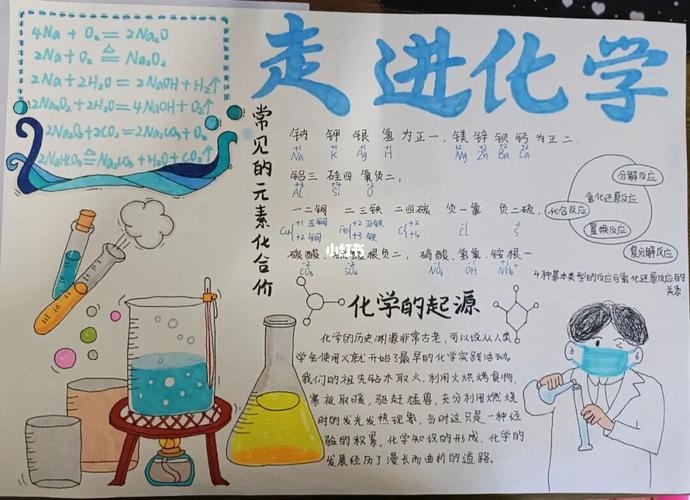 走进化学
4Na + O₂ = 2Na₂O
2Na + O₂ △= Na₂O₂
2Na + 2H₂O = 2NaOH + H₂↑
2Na₂O₂ + 2H₂O = 4NaOH + O₂↑
2Na₂O₂ + 2CO₂ = 2Na₂CO₃ + O₂
2NaHCO₃ △= Na₂CO₃ + H₂O + CO₂↑
常见的元素化合价
钠 钾 银 氢 为正一, 镁 锌 钡 钙 为正二.
+1 Na +1 K +1 Ag +1 H +2 Mg +2 Zn +2 Ba +2 Ca
铝三 硅四 氧负二,
+3 Al +4 Si -2 O
一二铜 二三铁 二四碳 负一氯 负二硫,
碳酸 硫酸根负二, 硝酸、氢氧、铵根一
分解反应
氧化还原反应
化合反应
置换反应
复分解反应
4种基本类型的反应与氧化还原反应的
关系
小红书
化学的起源
化学的历史渊源非常古老, 可以说从人类
学会使用火就开始了最早的化学实践活动.
我们的祖先钻木取火, 利用火烘烤食物,
寒夜取暖, 驱赶猛兽, 充分利用燃烧
时的发光发热现象, 当时这只是一种经
验的积累, 化学知识的形成、化学的
发展经历了漫长而曲折的道路.